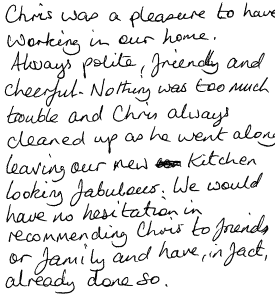 Chris was a pleasure to have
working in our home.
Always polite, friendly and
cheerful. Nothing was too much
trouble and Chris always
cleaned up as he went along
leaving our new Kitchen
looking fabulous. We would
have no hesitation in
recommending Chris to friends
or family and have, in fact,
already done so.